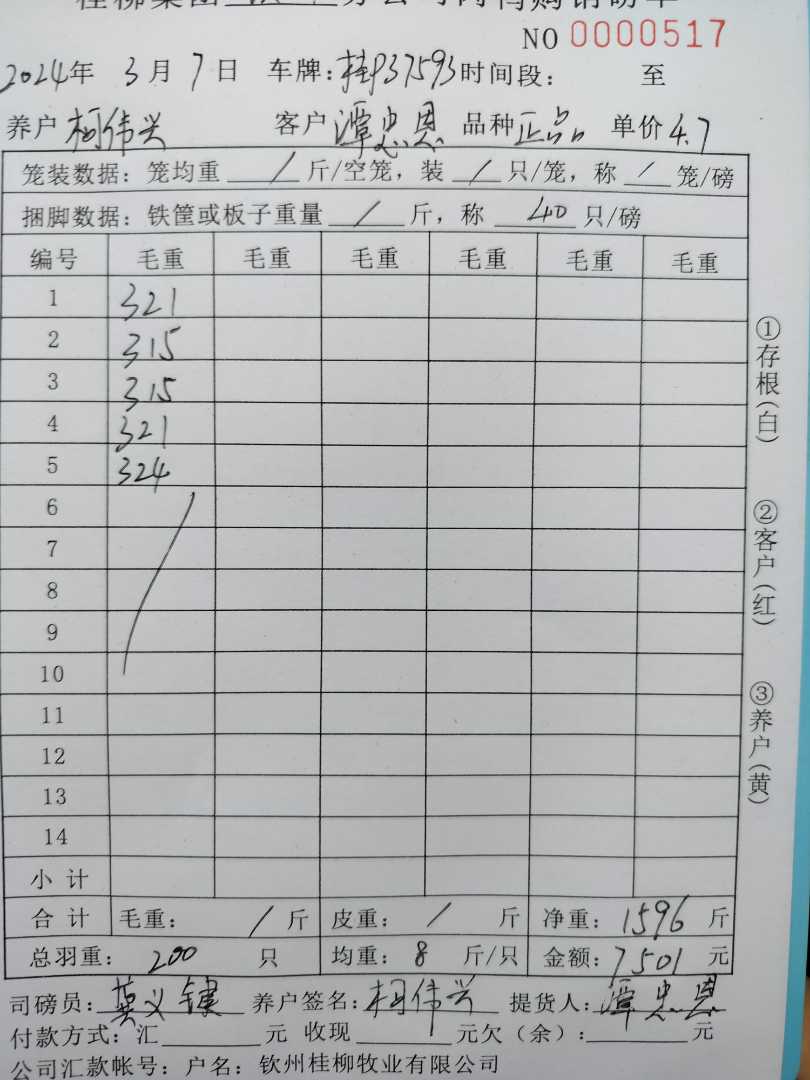 NO 0000517
2024年 3月 7日 车牌:桂P37593 时间段: 至
养户 柯伟兴 客户 潭忠恩 品种 正品 单价 4.7
笼装数据:笼均重 / 斤/空笼,装 / 只/笼,称 / 笼/磅
捆脚数据:铁筐或板子重量 / 斤,称 40 只/磅
编号 毛重 毛重 毛重 毛重 毛重 毛重
1 321
2 315
3 315
4 321
5 324
6
7
8
9
10
11
12
13
14
小 计
合 计 毛重: / 斤 皮重: / 斤 净重: 1596 斤
总羽重: 200 只 均重: 8 斤/只 金额: 7501 元
司磅员: 莫义键 养户签名: 柯伟兴 提货人: 潭忠恩
付款方式:汇 元 收现 元欠(余): 元
公司汇款帐号:户名:钦州桂柳牧业有限公司
①存根(白)
②客户(红)
③养户(黄)